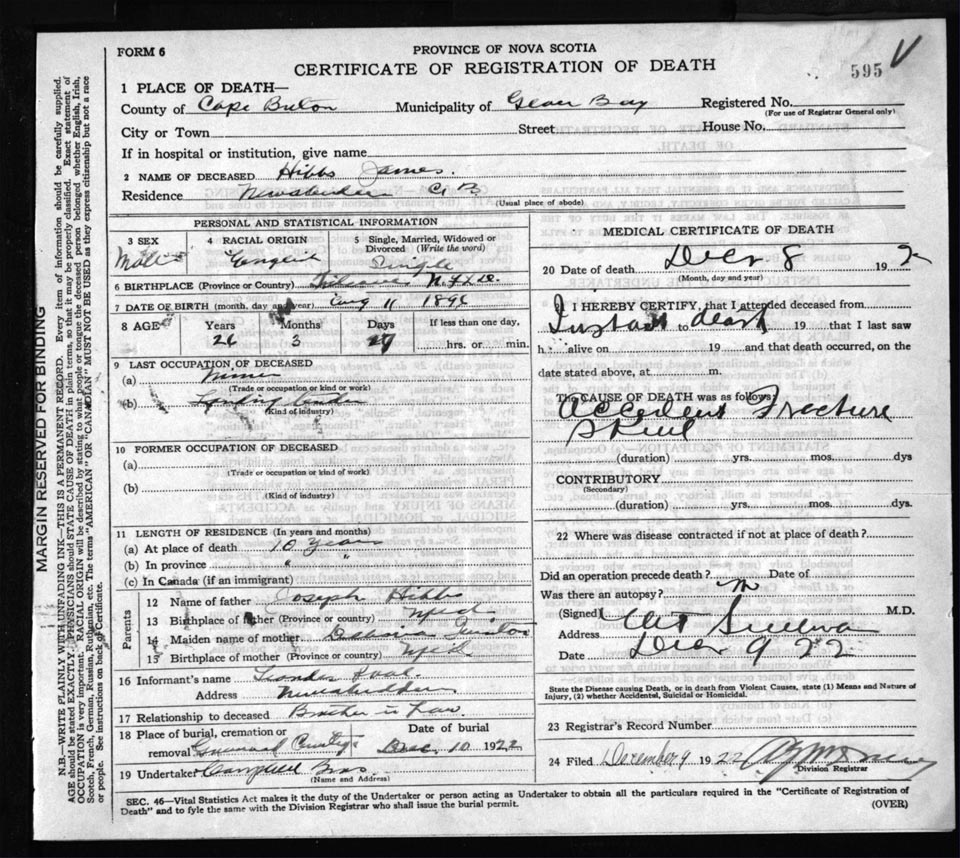 FORM 6
PROVINCE OF NOVA SCOTIA
CERTIFICATE OF REGISTRATION OF DEATH
595
1 PLACE OF DEATH—
County of Cape Breton Municipality of Glace Bay Registered No.
(For use of Registrar General only)
City or Town Street House No.
If in hospital or institution, give name
2 NAME OF DECEASED Hibbs James.
Residence Newaberdeen C B
(Usual place of abode)
PERSONAL AND STATISTICAL INFORMATION
3 SEX
Male
4 RACIAL ORIGIN
English
5 Single, Married, Widowed or Divorced (Write the word)
Single
6 BIRTHPLACE (Province or Country) Nfld.
7 DATE OF BIRTH (month, day and year) Aug 11 1896
8 AGE Years Months Days If less than one day,
26 3 27 hrs. or min.
9 LAST OCCUPATION OF DECEASED
(a) miner
(Trade or occupation or kind or work)
(b)
(Kind of industry)
10 FORMER OCCUPATION OF DECEASED
(a)
(Trade or occupation or kind of work)
(b)
(Kind of industry)
11 LENGTH OF RESIDENCE (In years and months)
(a) At place of death 10 years
(b) In province "
(c) In Canada (if an immigrant)
Parents
12 Name of father Joseph Hibbs
13 Birthplace of father (Province or country) Nfld
14 Maiden name of mother
15 Birthplace of mother (Province or country) Nfld
16 Informant's name
Address Newaberdeen
17 Relationship to deceased Brother in Law
18 Place of burial, cremation or removal Date of burial
Greenwood Dec. 10 1922
19 Undertaker Campbell Bros
(Name and Address)
MEDICAL CERTIFICATE OF DEATH
20 Date of death Decr 8 19 2
(Month, day and year)
I HEREBY CERTIFY, that I attended deceased from
Instant to death 19 that I last saw
h alive on 19 and that death occurred, on the
date stated above, at m.
The CAUSE OF DEATH was as follows:
Accident Fracture
Skull
(duration) yrs. mos. dys
CONTRIBUTORY
(Secondary)
(duration) yrs. mos. dys.
22 Where was disease contracted if not at place of death?
Did an operation precede death? Date of
Was there an autopsy? No
(Signed) M.D.
Address
Date Decr 9 22
State the Disease causing Death, or in death from Violent Causes, state (1) Means and Nature of Injury, (2) whether Accidental, Suicidal or Homicidal.
23 Registrar's Record Number
24 Filed December 9 1922
Division Registrar
SEC. 46—Vital Statistics Act makes it the duty of the Undertaker or person acting as Undertaker to obtain all the particulars required in the "Certificate of Registration of
Death" and to fyle the same with the Division Registrar who shall issue the burial permit. (OVER)
MARGIN RESERVED FOR BINDING
N.B.—WRITE PLAINLY WITH UNFADING INK—THIS IS A PERMANENT RECORD. Every item of information should be carefully supplied.
AGE should be stated EXACTLY. PHYSICIANS should STATE CAUSE OF DEATH in plain terms, so that it may be properly classified. Exact statement of
OCCUPATION is very important. RACIAL ORIGIN will be described by stating to what people or tongue the deceased person belonged whether English, Irish,
Scotch, French, German, Russian, Ruthenian, etc. The terms "AMERICAN" OR "CANADIAN" MUST NOT BE USED as they express citizenship but not a race
or people. See instructions on back of Certificate.